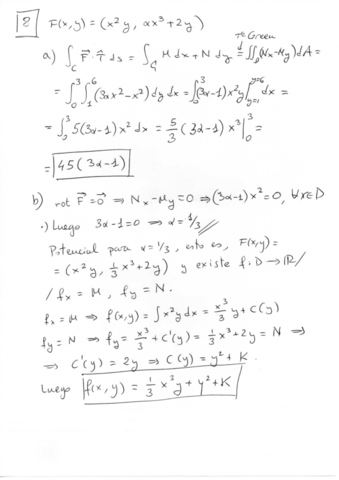 2 F(x,y) = (x²y, αx³+2y)
a) ∫_C F⃗·T⃗ ds = ∫_C M dx + N dy = ∬_D (Nx-My) dA = Tª Green
= ∫₀³ ∫₁⁶ (3αx²-x²) dy dx = ∫₀³ (3α-1)x²y |_{y=1}^{y=6} dx =
= ∫₀³ 5(3α-1)x² dx = 5/3 (3α-1) x³ |₀³ =
= 45(3α-1)
b) rot F⃗ = 0⃗ ⇒ Nx-My=0 ⇒ (3α-1)x²=0, ∀x∈D
·) Luego 3α-1=0 ⇒ α=1/3
Potencial para α=1/3, esto es, F(x,y)=
= (x²y, 1/3 x³+2y) y existe f:D→ℝ/
/ fx = M, fy = N.
fx = M ⇒ f(x,y) = ∫x²y dx = x³/3 y + C(y)
fy = N ⇒ fy = x³/3 + C'(y) = 1/3 x³+2y = N ⇒
⇒ C'(y) = 2y ⇒ C(y) = y² + K.
Luego f(x,y) = 1/3 x³y + y² + K